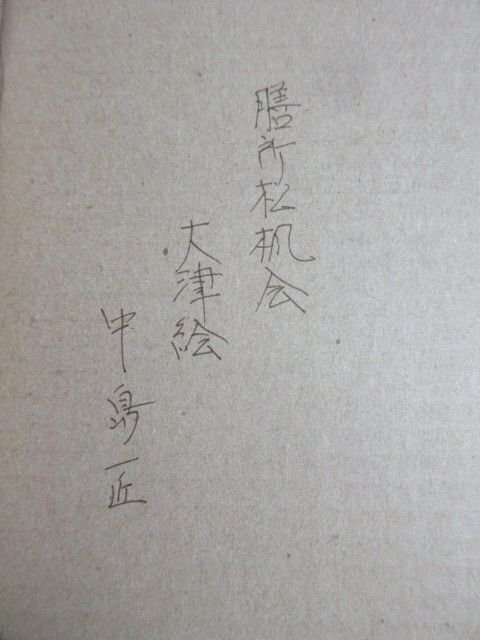 膳所松机会
大津絵
中島一匠